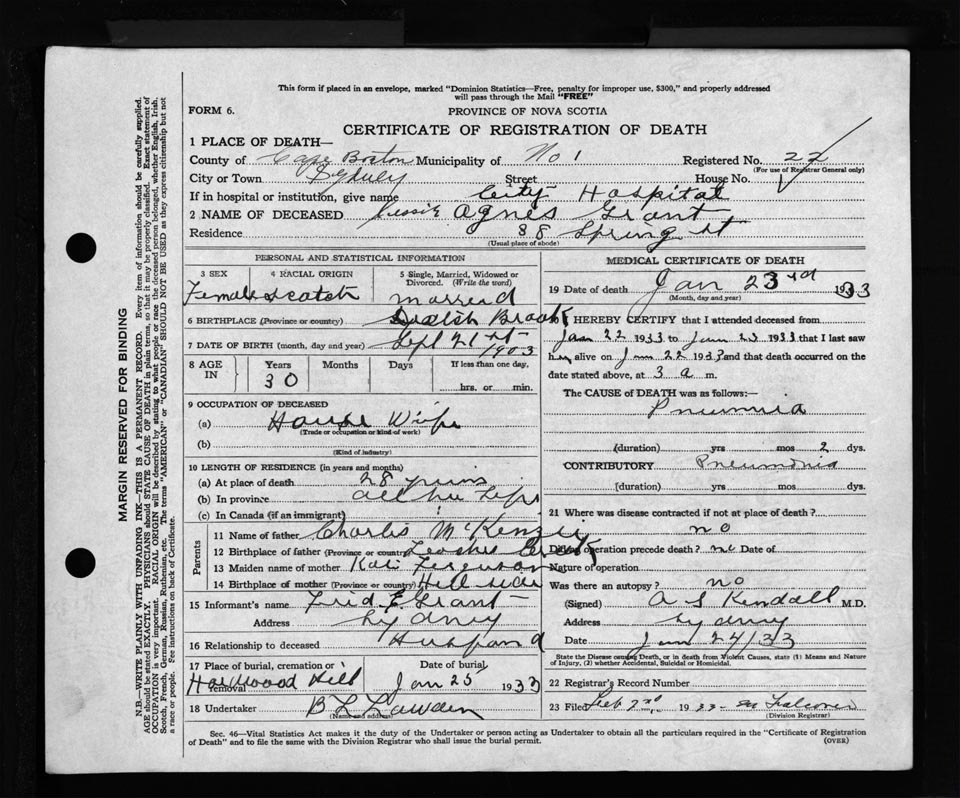 This form if placed in an envelope, marked "Dominion Statistics—Free, penalty for improper use, $300," and properly addressed
will pass through the Mail "FREE"
FORM 6.
PROVINCE OF NOVA SCOTIA
CERTIFICATE OF REGISTRATION OF DEATH
1 PLACE OF DEATH—
County of Cape Breton Municipality of No 1 Registered No. 22
(For use of Registrar General only)
City or Town Sydney Street House No.
If in hospital or institution, give name City Hospital
2 NAME OF DECEASED Jessie Agnes Grant
Residence 88 Spring st
(Usual place of abode)
PERSONAL AND STATISTICAL INFORMATION
3 SEX 4 RACIAL ORIGIN 5 Single, Married, Widowed or Divorced. (Write the word)
Female Scotch married
6 BIRTHPLACE (Province or country) Brook
7 DATE OF BIRTH (month, day and year) Sept 21st 1903
8 AGE IN Years Months Days If less than one day,
30 hrs. or min.
9 OCCUPATION OF DECEASED
(a) House Wife
(Trade or occupation or kind of work)
(b)
(Kind of industry)
10 LENGTH OF RESIDENCE (in years and months)
(a) At place of death 28 years
(b) In province all her Life
(c) In Canada (if an immigrant)
Parents
11 Name of father Charles McKenzie
12 Birthplace of father (Province or country)
13 Maiden name of mother Kate Ferguson
14 Birthplace of mother (Province or country)
15 Informant's name Fred E Grant
Address Sydney
16 Relationship to deceased Husband
17 Place of burial, cremation or removal Date of burial
Hardwood Hill Jan 25 1933
18 Undertaker B L
(Name and address)
MEDICAL CERTIFICATE OF DEATH
19 Date of death Jan 23rd 1933
(Month, day and year)
I HEREBY CERTIFY that I attended deceased from
Jan 22 1933 to Jan 23 1933 that I last saw
her alive on Jan 22 1933 and that death occurred on the
date stated above, at 3 a m.
The CAUSE OF DEATH was as follows:
Pneumonia
(duration) yrs mos 2 dys.
CONTRIBUTORY Pneumonia
(duration) yrs mos dys.
21 Where was disease contracted if not at place of death?
no
Did an operation precede death? no Date of
Nature of operation
Was there an autopsy? no
(Signed) A S Kendall M.D.
Address Sydney
Date Jan 24/33
State the Disease causing Death, or in death from Violent Causes, state (1) Means and Nature
of Injury, (2) whether Accidental, Suicidal or Homicidal.
22 Registrar's Record Number
23 Filed Feb 2nd 1933
(Division Registrar)
Sec. 46—Vital Statistics Act makes it the duty of the Undertaker or person acting as Undertaker to obtain all the particulars required in the "Certificate of Registration
of Death" and to file the same with the Division Registrar who shall issue the burial permit. (OVER)
MARGIN RESERVED FOR BINDING
N.B.—WRITE PLAINLY WITH UNFADING INK—THIS IS A PERMANENT RECORD. Every item of information should be carefully supplied.
AGE should be stated EXACTLY. PHYSICIANS should STATE CAUSE OF DEATH in plain terms, so that it may be properly classified. Exact statement of
OCCUPATION is very important. RACIAL ORIGIN will be described by stating to what people or race the deceased person belonged, whether English, Irish,
Scotch, French, German, Russian, Ruthenian, etc. The terms "AMERICAN" or "CANADIAN" SHOULD NOT BE USED as they express citizenship but not
a race or people. See instructions on back of Certificate.